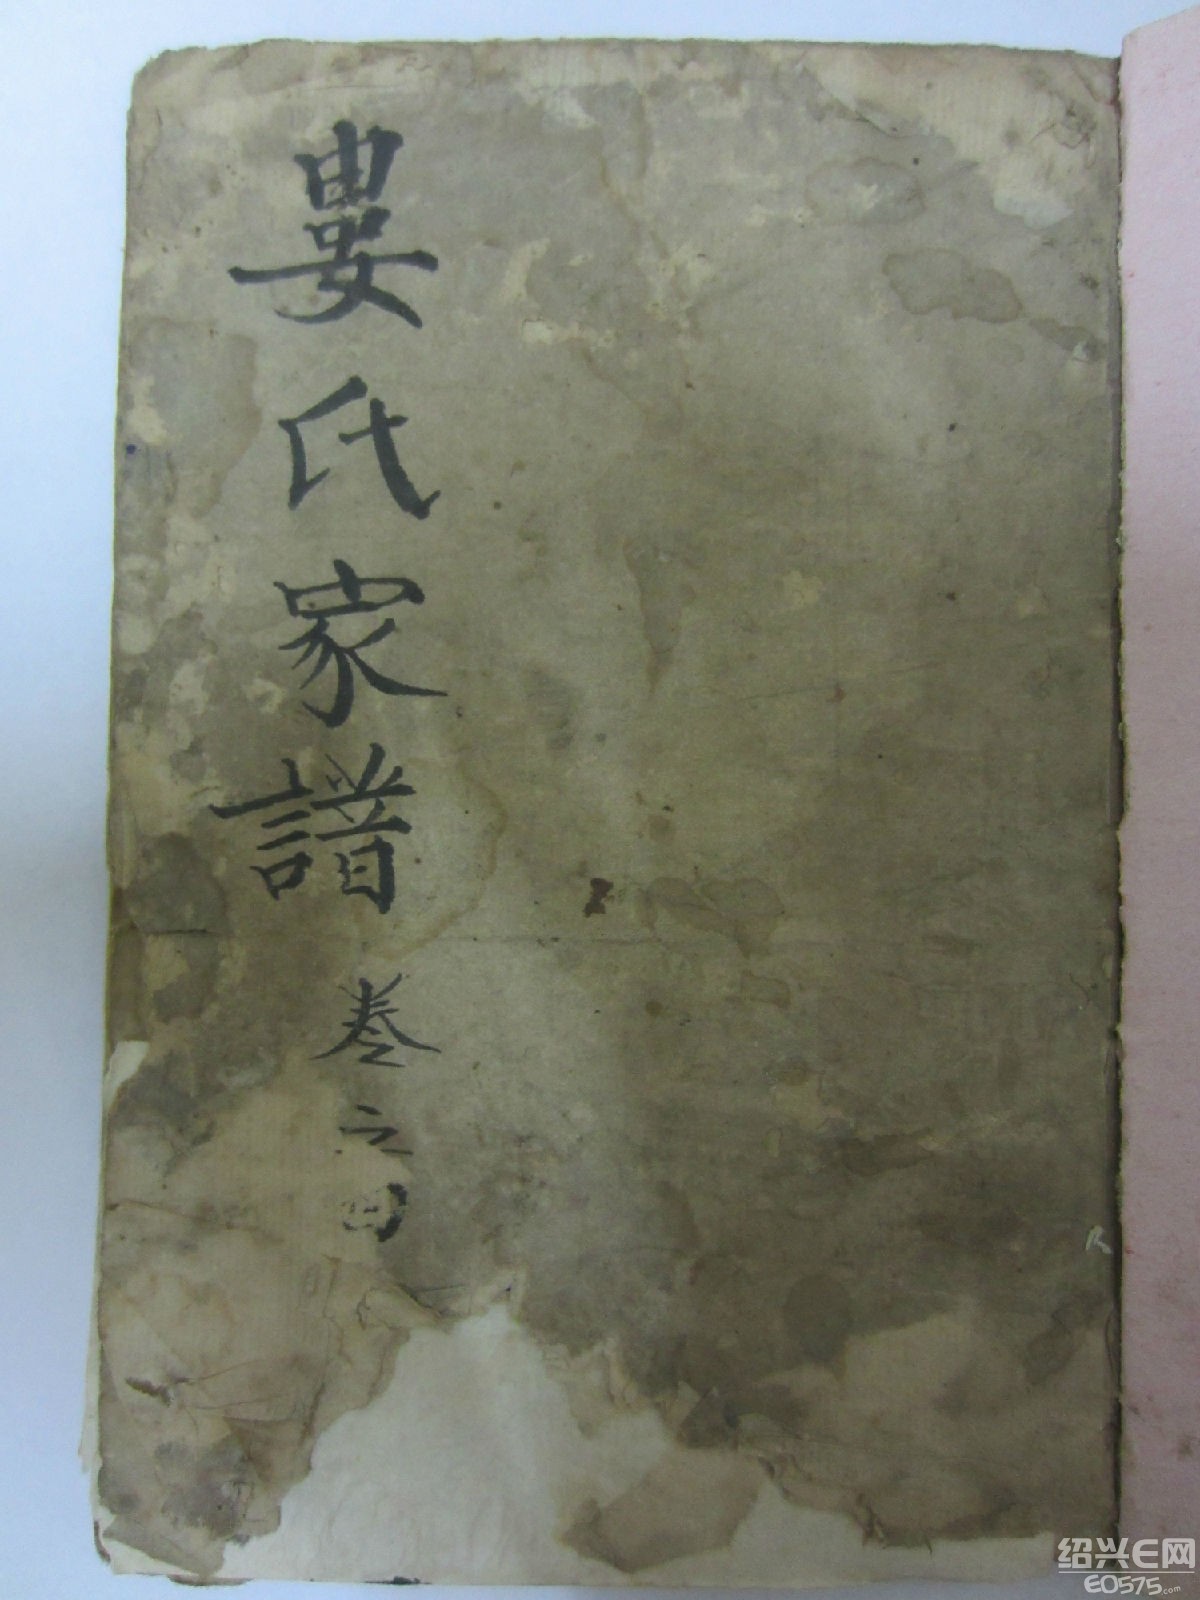 婁氏家譜 卷之四
绍兴E网
E0575.com